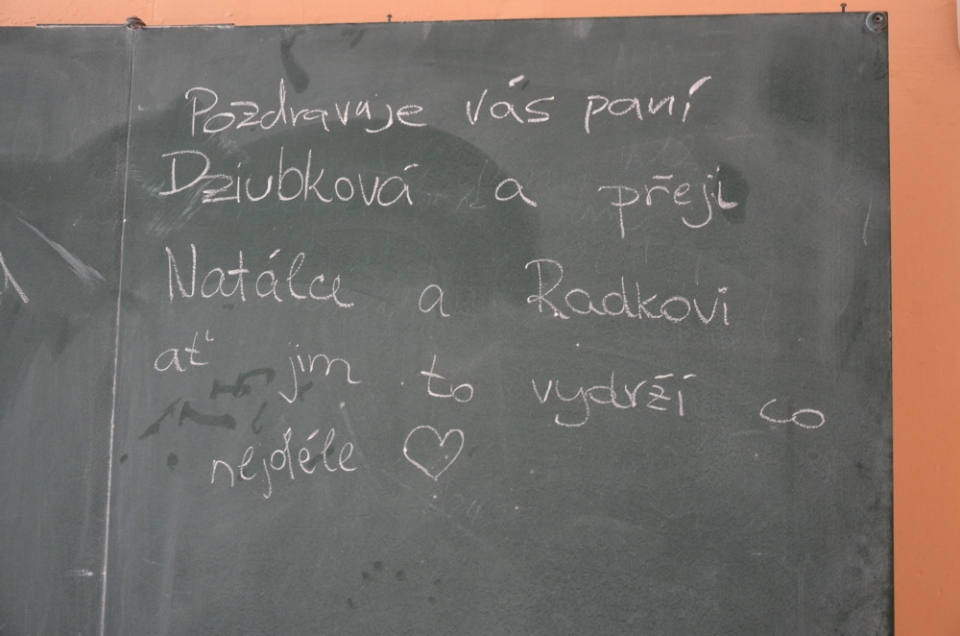 Pozdravuje vás paní
Dziubková a přeji
Natálce a Radkovi
ať jim to vydrží co
nejdéle ♡